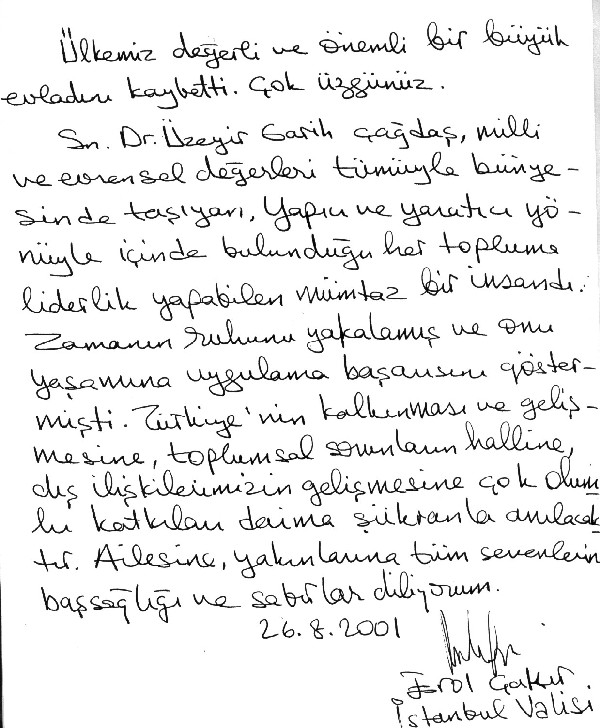 Ülkemiz değerli ve önemli bir büyük
evladını kaybetti. Çok üzgünüz.
Sn. Dr. Üzeyir Garih çağdaş, milli
ve evrensel değerleri tümüyle bünye-
sinde taşıyan, Yapıcı ve yaratıcı yö-
nüyle içinde bulunduğu her topluma
liderlik yapabilen mümtaz bir insandı.
Zamanın ruhunu yakalamış ve onu
yaşamına uygulama başarısını göster-
mişti. Türkiye'nin kalkınması ve geliş-
mesine, toplumsal sorunların halline,
dış ilişkilerimizin gelişmesine çok olum
lu katkıları daima şükranla anılacak
tır. Ailesine, yakınlarına tüm sevenlerine
başsağlığı ve sabırlar diliyorum.
26.8.2001
Erol Çakır
İstanbul Valisi